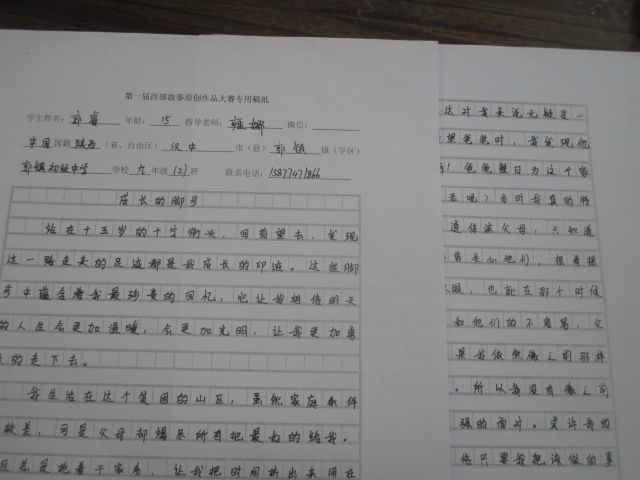 第一届西部故事原创作品大赛专用稿纸
学生姓名：郭睿 年龄：15 指导老师：雍娜 微信：
中国国籍 陕西（省、自治区）汉中 市（县）郭镇 镇（学区）
郭镇初级中学 学校 九 年级（2）班 联系电话：
成长的脚步
站在十五岁的十字街头，回首望去，发现
这一路走来的足迹都是我成长的印迹。这些脚
步中蕴含着我最珍贵的回忆，它让我相信明天
的人生会更加温暖，会更加光明，让我更加勇
的走下去。
我生活在这个贫困的山区，虽然家庭条件
较差，可是父母却竭尽所有把最好的给我。
且总是抢着干家务，让我把时间挤出来用在
达对我来说无疑是一
望爸爸时，我发现他
！爸爸整日为这个家
去呢？当时我真的
道体谅父母，只知道
关心他们，想着
眼，也就在那个时候
和他们的不容易，父
是我依然像从前那样
。所以我没有像从前
强的面对。或许我的
但只要我把该做的事